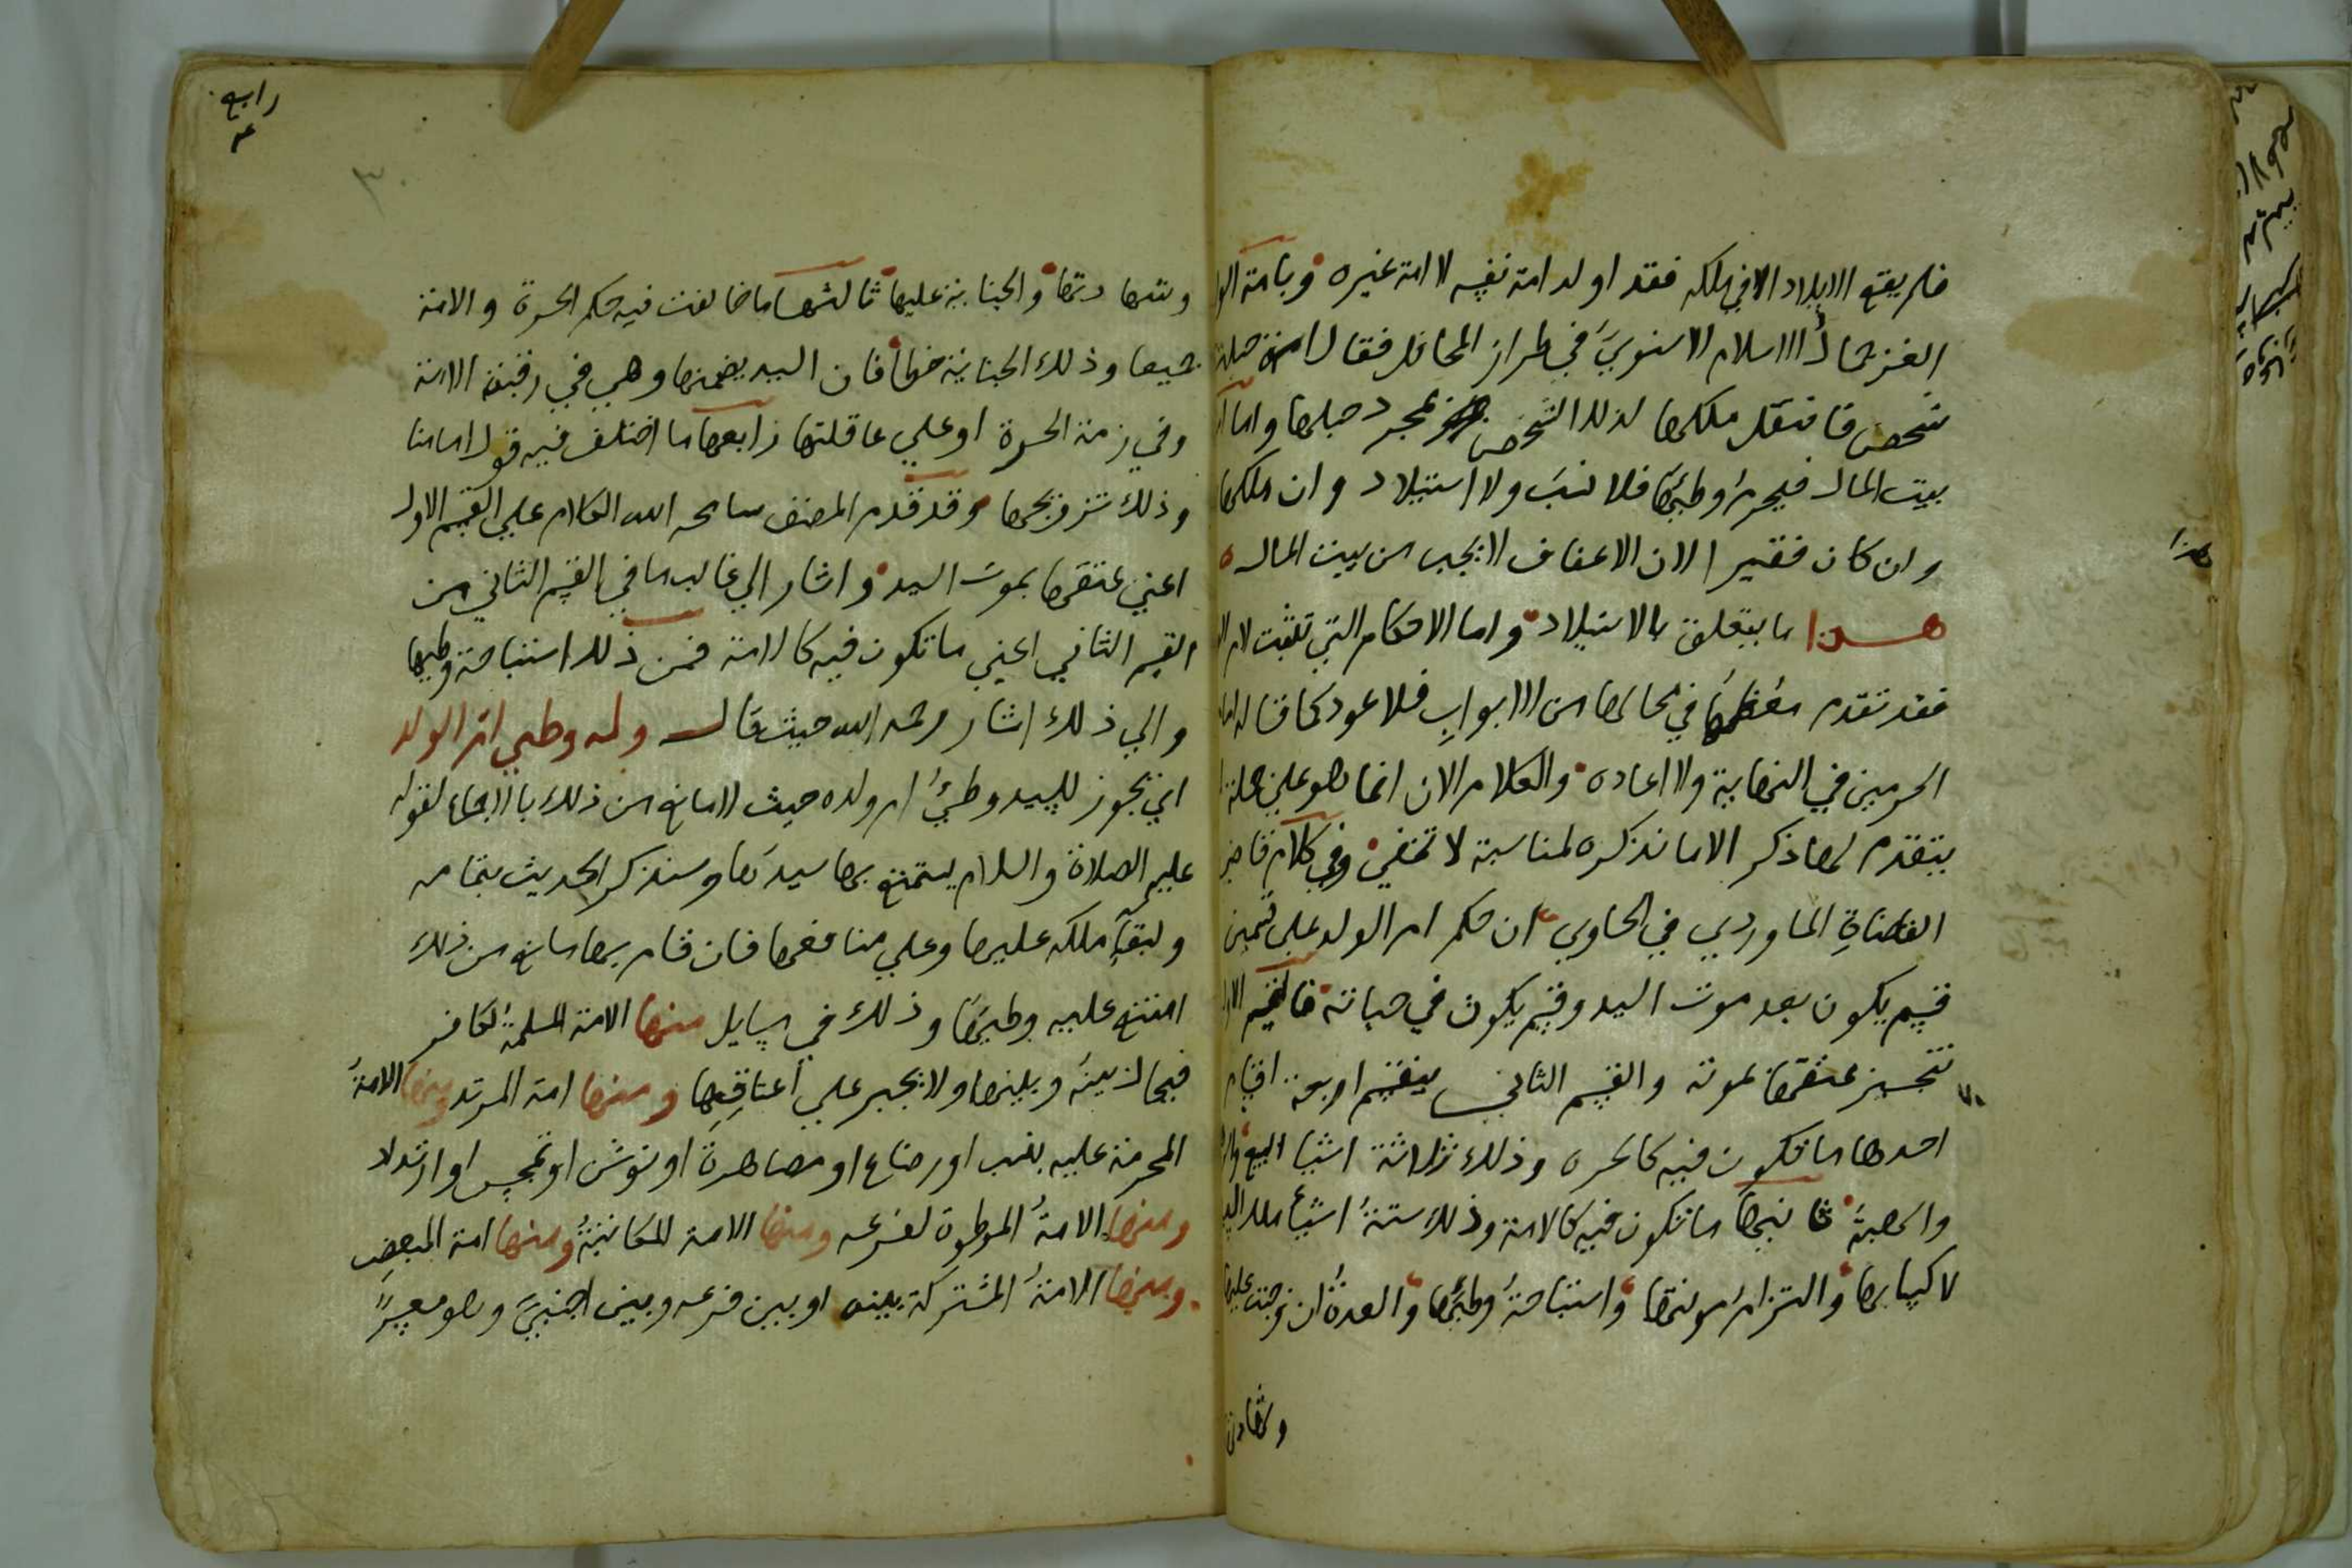 فلم يقع الايلاد الا في ملكه فقد اولد امة نفسه لا امة غيره وبامة
الغز جمال الاسلام الاسنوي في طراز المحافل فقال امة حبلت
شخص فانتقل ملكها لذلك الشخص بمجرد حبلها واما
بيت المال فيحرم وطئها فلا نسب ولا استيلاد وان ملكها
وان كان فقيرا لان الاعفاف لا يجب من بيت المال
هذا ما يتعلق بالاستيلاد واما الاحكام التي تثبت لام
فقد تقدم معظمها في محالها من الابواب فلا عود كما قاله امام
الحرمين في النهاية ولا اعاده والكلام الان انما هو علي جملة
يتقدم لها ذكر الا ما نذكره لمناسبة لا تخفي وفي كلام قاضي
القضاة الماوردي في الحاوي ان حكم ام الولد علي قسمين
قسم يكون بعد موت السيد وقسم يكون في حياته فالقسم
تنجيز عتقها بموته والقسم الثاني ينقسم اربعة اقسام
احدها ما تكون فيه كالحره وذلك ثلاثة اشيا البيع
والهبة ثانيها ما تكون فيه كالامة وذلك ستة اشيا ملك السيد
لاكسابها والتزام مونتها واستباحة وطئها والعدة ان وجبت عليها
وشهادتها
هذا
رابع
٣٠
وشهادتها والجناية عليها ثالثها ما خالفت فيه حكم الحرة والامة
جميعا وذلك الجناية خطأ فان السيد يضمنها وهي في رقبة الامة
وفي ذمة الحرة او علي عاقلتها رابعها ما اختلف فيه قول امامنا
وذلك تزويجها وقد قدم المصنف سامحه الله الكلام علي القسم الاول
اعني عتقها بموت السيد واشار الي غالب ما في القسم الثاني من
القسم الثاني اعني ما تكون فيه كالامة فمن ذلك استباحة وطيها
والي ذلك اشار رحمه الله حيث قال وله وطي ام الولد
اي يجوز للسيد وطئ ام ولده حيث لا مانع من ذلك بالاجماع لقوله
عليه الصلاة والسلام يستمتع بها سيدها وسنذكر الحديث بتمامه
ولبقآء ملكه عليها وعلي منافعها فان قام بها مانع من ذلك
امتنع عليه وطيها وذلك في مسايل منها الامة المسلمة لكافر
فيحال بينه وبينها ولا يجبر علي اعتاقها ومنها امة المرتد ومنها الامة
المحرمة عليه بنسب او رضاع او مصاهرة او توثن او تمجس او ارتداد
ومنها الامة الموطوة لفرعه ومنها الامة المكاتبة ومنها امة المبعض
ومنها الامة المشتركة بينه او بين فرعه وبين اجنبي وهو معسر